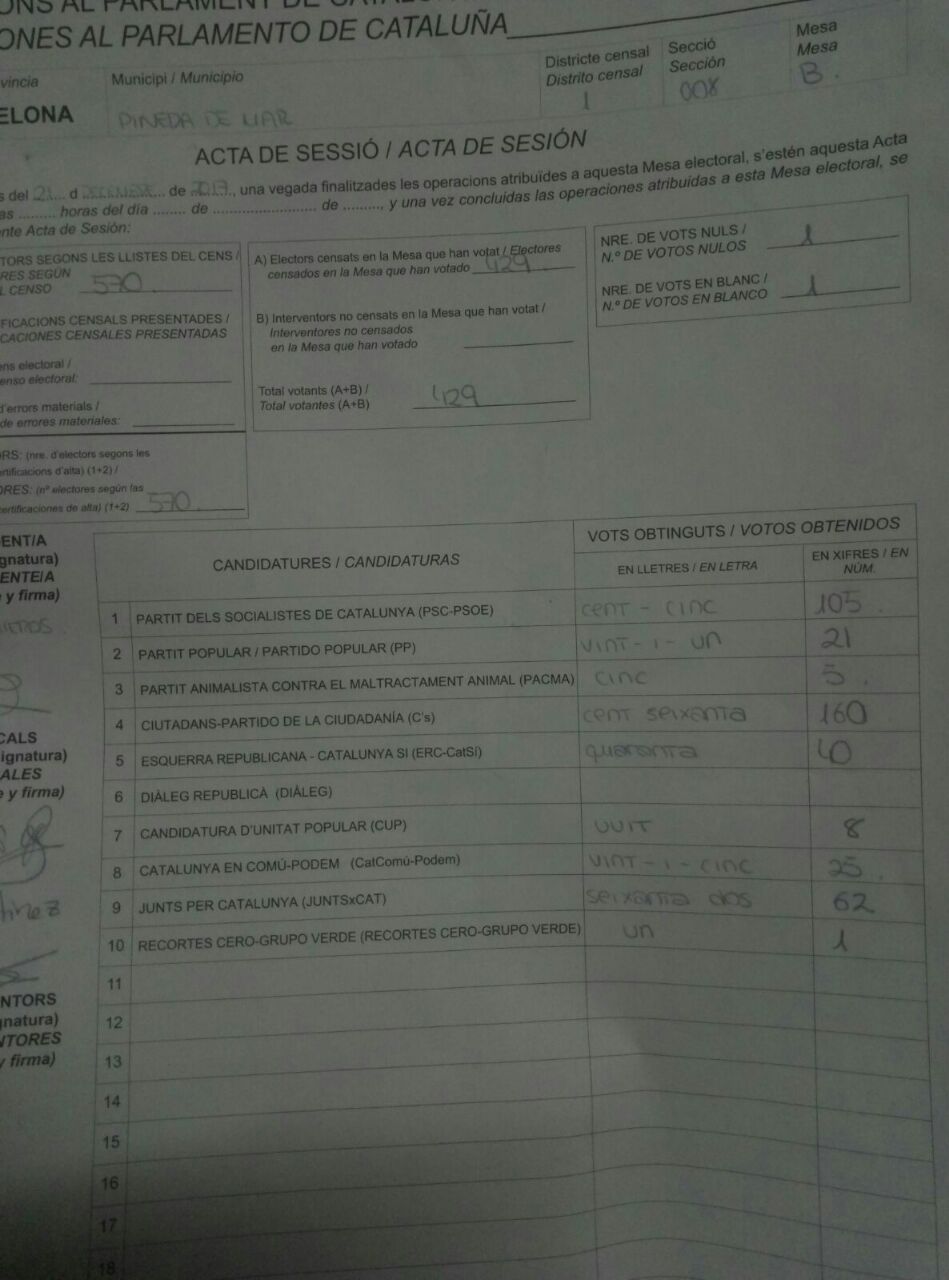 ONS AL PARLAMENT DE CATALU
ONES AL PARLAMENTO DE CATALUÑA
vincia
ELONA
Municipi / Municipio
PINEDA DE MAR
Districte censal
Distrito censal
1
Secció
Sección
008
Mesa
Mesa
B.
ACTA DE SESSIÓ / ACTA DE SESIÓN
s del 21 d DECEMBRE de 2017, una vegada finalitzades les operacions atribuïdes a aquesta Mesa electoral, s'estén aquesta Acta
as ......... horas del día ........ de ........................ de ........., y una vez concluidas las operaciones atribuidas a esta Mesa electoral, se
nte Acta de Sesión:
TORS SEGONS LES LLISTES DEL CENS /
RES SEGÚN
L CENSO 570
FICACIONS CENSALS PRESENTADES /
CACIONES CENSALES PRESENTADAS
ens electoral /
enso electoral:
d'errors materials /
de errores materiales:
ORS: (nre. d'electors segons les
ertificacions d'alta) (1+2) /
ORES: (nº electores según las
certificaciones de alta) (1+2) 570
A) Electors censats en la Mesa que han votat / Electores
censados en la Mesa que han votado 429
B) Interventors no censats en la Mesa que han votat /
Interventores no censados
en la Mesa que han votado
Total votants (A+B) /
Total votantes (A+B) 429
NRE. DE VOTS NULS /
N.º DE VOTOS NULOS 1
NRE. DE VOTS EN BLANC /
N.º DE VOTOS EN BLANCO 1
DENT/A
gnatura)
ENTE/A
e y firma)
CALS
ignatura)
ALES
e y firma)
NTORS
gnatura)
NTORES
y firma)
CANDIDATURES / CANDIDATURAS
VOTS OBTINGUTS / VOTOS OBTENIDOS
EN LLETRES / EN LETRA
EN XIFRES / EN
NÚM.
1 PARTIT DELS SOCIALISTES DE CATALUNYA (PSC-PSOE) cent - cinc 105.
2 PARTIT POPULAR / PARTIDO POPULAR (PP) VINT-I-UN 21
3 PARTIT ANIMALISTA CONTRA EL MALTRACTAMENT ANIMAL (PACMA) cinc 5.
4 CIUTADANS-PARTIDO DE LA CIUDADANÍA (C's) cent seixanta 160
5 ESQUERRA REPUBLICANA - CATALUNYA SI (ERC-CatSí) quaranta 40
6 DIÀLEG REPUBLICÀ (DIÀLEG)
7 CANDIDATURA D'UNITAT POPULAR (CUP) VUIT 8
8 CATALUNYA EN COMÚ-PODEM (CatComú-Podem) VINT-I-CINC 25.
9 JUNTS PER CATALUNYA (JUNTSxCAT) seixanta dos 62
10 RECORTES CERO-GRUPO VERDE (RECORTES CERO-GRUPO VERDE) un 1
11
12
13
14
15
16
17
18